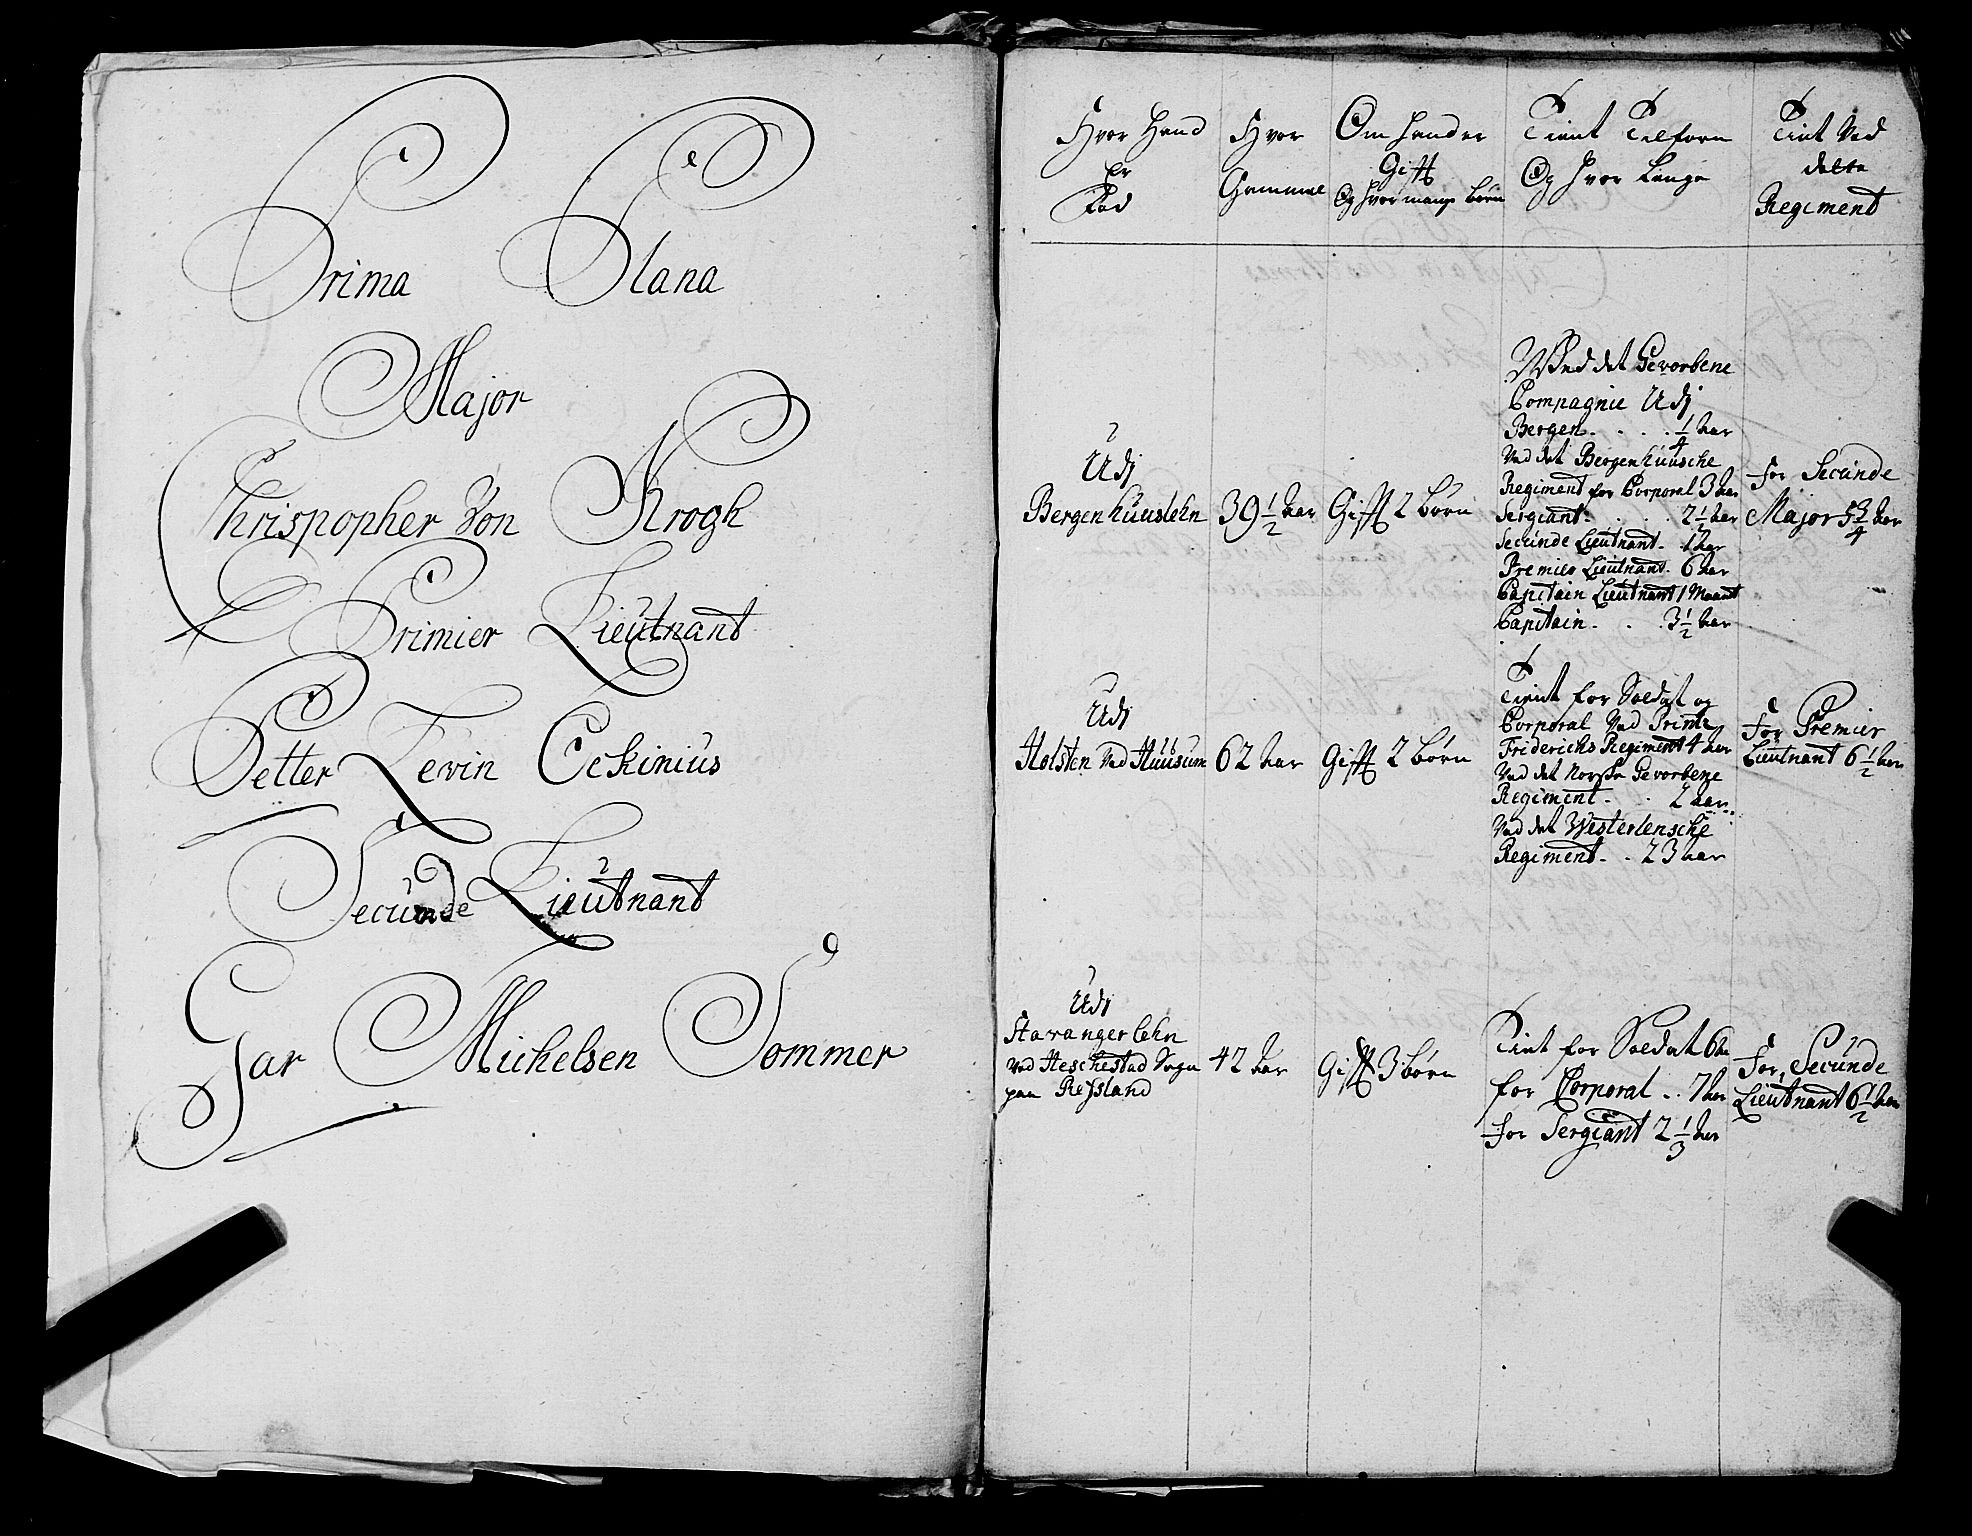 Prima Plana
Major
Chrispopher Von Krogh
Primier Lieutnant
Petter Levin Cekinius
Secunde Lieutnant
Gar Michelsen Sommer
Hvor Hand
Er
Fød
Hvor
Gammel
Om hand er
Gift
Og hvor mange børn
Tient Tilforn
Og hvor Lenge
Tient Ved
dette
Regiment
Udj
Bergenhuuslehn
39 1/2 aar
Gift 2 børn
Ved det Gevorbene
Compagnie Udj
Bergen . . . 1/4 aar
Ved det Bergenhuusche
Regiment for Corporal 3 aar
Sergiant . . . 2 1/2 aar
Secunde Lieutnant . 1 aar
Premier Lieutnant . 6 aar
Capitain Lieutnant 1 Maant
Capitain . . . 3 1/2 aar
for Secunde
Major 5 3/4 aar
Udj
Holsten Ved Huusum
62 aar
Gift 2 børn
Tient for Soldat og
Corporal Ved Printz
Friderichs Regiment 4 aar
Ved det Norske Gevorbene
Regiment . . 2 aar
Ved det Westerlensche
Regiment . . 23 aar
for Premier
Lieutnant 6 1/2 aar
Udj
Stavanger lehn
Ved Heschestad Sogn
paa Reßland
42 aar
Gift 3 børn
Tient for Soldat 6 aar
for Corporal . . 7 aar
for Sergiant 2 1/3 aar
For Secunde
Lieutnant 6 1/2 aar